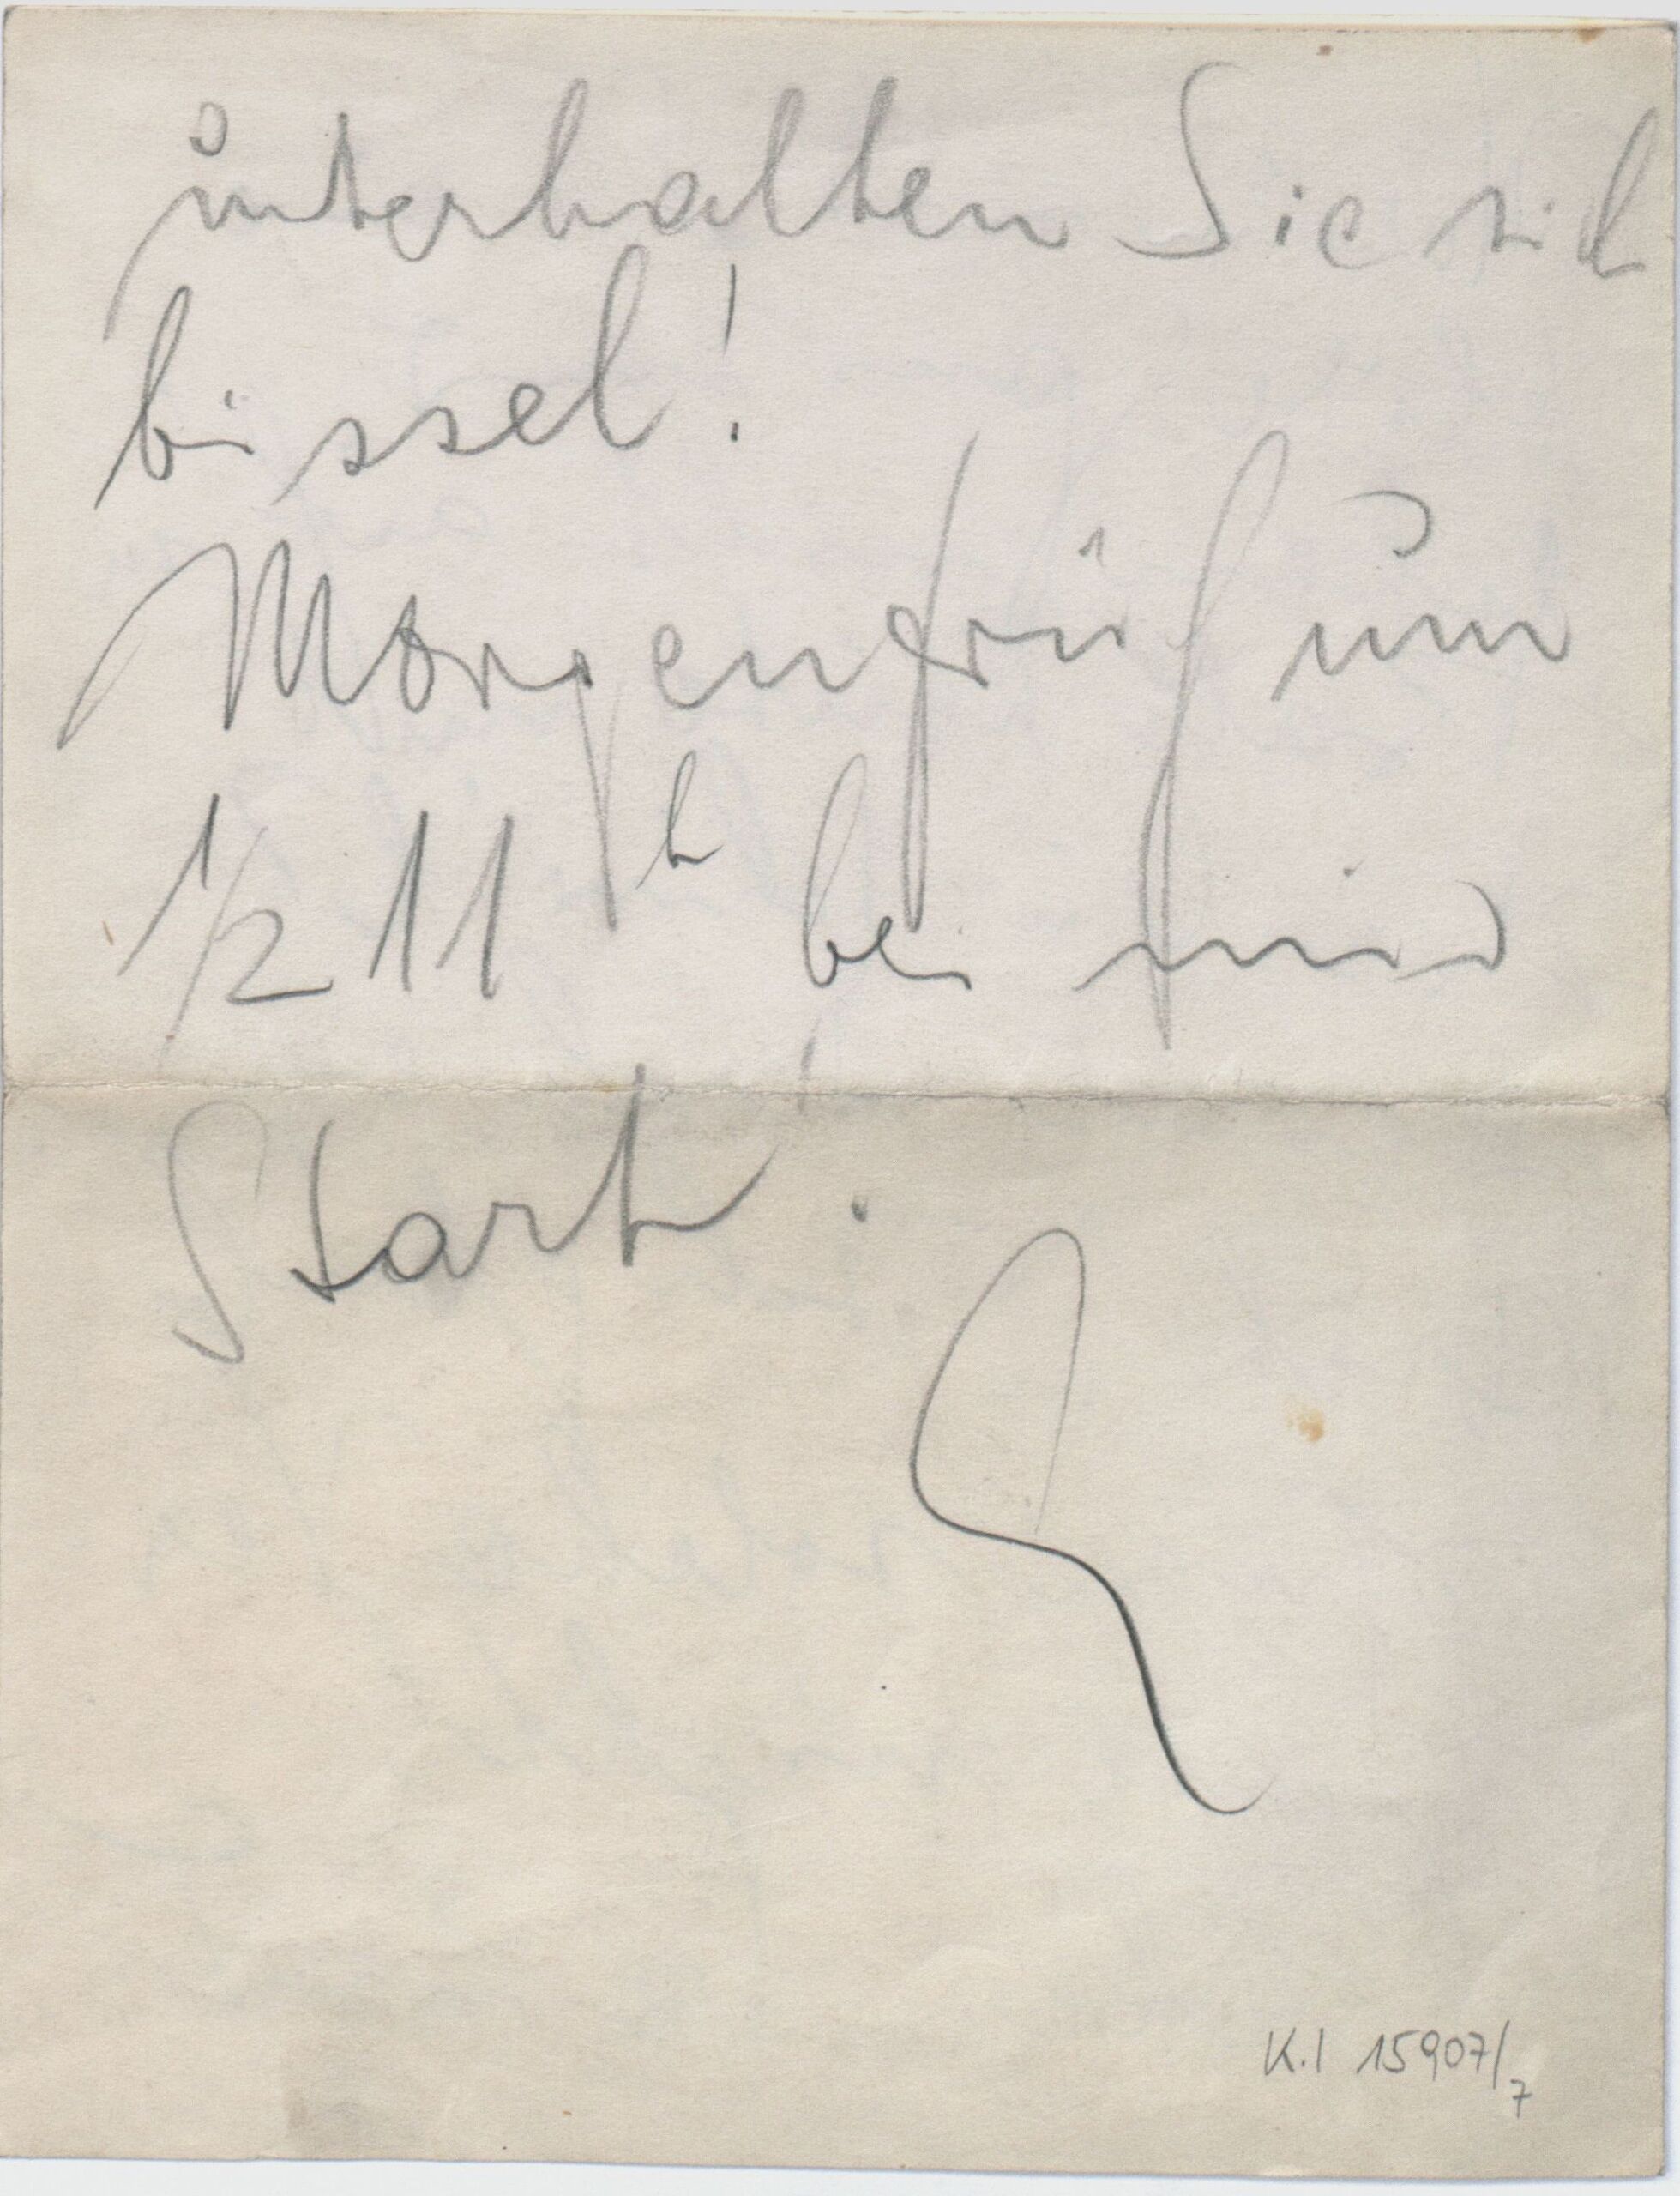 unterhalten Sie sich
bissel!
Morgenfrüh um
1/2 11h bei mir
Start.
K.I 15907/7